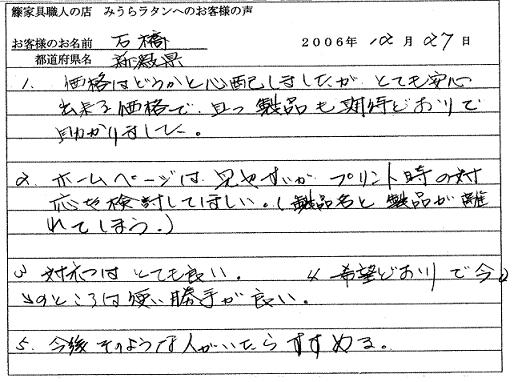 籐家具職人の店 みうらラタンへのお客様の声
お客様のお名前 石橋
都道府県名 新潟県
2006年 12月 27日
1. 価格はどうかと心配しましたが、とても安心
出来る価格で、且つ製品も期待どおりで
助かりました。
2. ホームページは見やすいが プリント時の対
応を検討してほしい。(製品名と製品が離
れてしまう。)
3 対応はとても良い。 4 希望どおりで今の
ところは使い勝手が良い。
5. 今後そのような人がいたらすすめる。